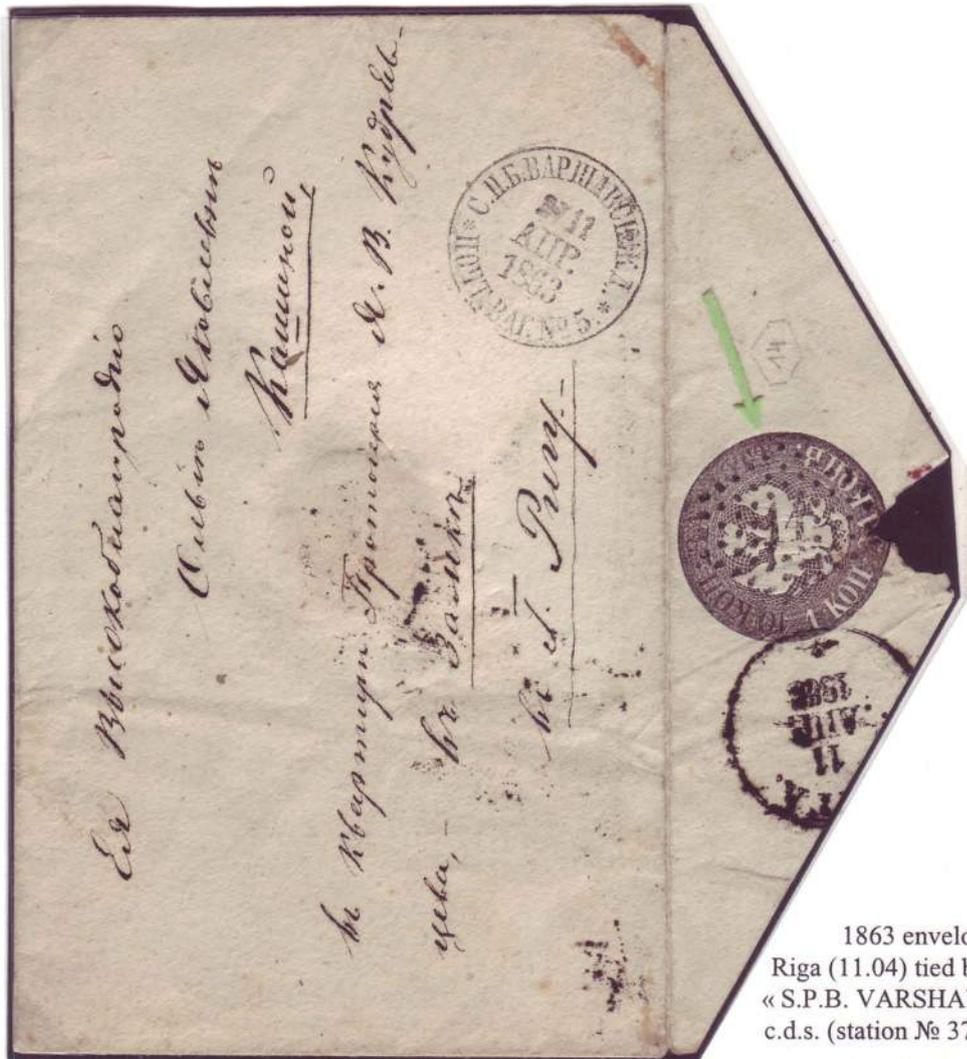 Ея Высокоблагородію
Яковлевнѣ
Кашиной
въ Квартирѣ Протоіерея В. Кудряв-
цева, – въ Замкѣ
въ г. Ригу. –
С.П.Б. ВАРШАВСК. Ж.Д.
ПОЧТ. ВАГ. № 5.
11
АПР.
1863
14
10 КОП. 1 КОП.
11
АПР.
1863
1863 envelo
Riga (11.04) tied b
« S.P.B. VARSHA
c.d.s. (station № 37